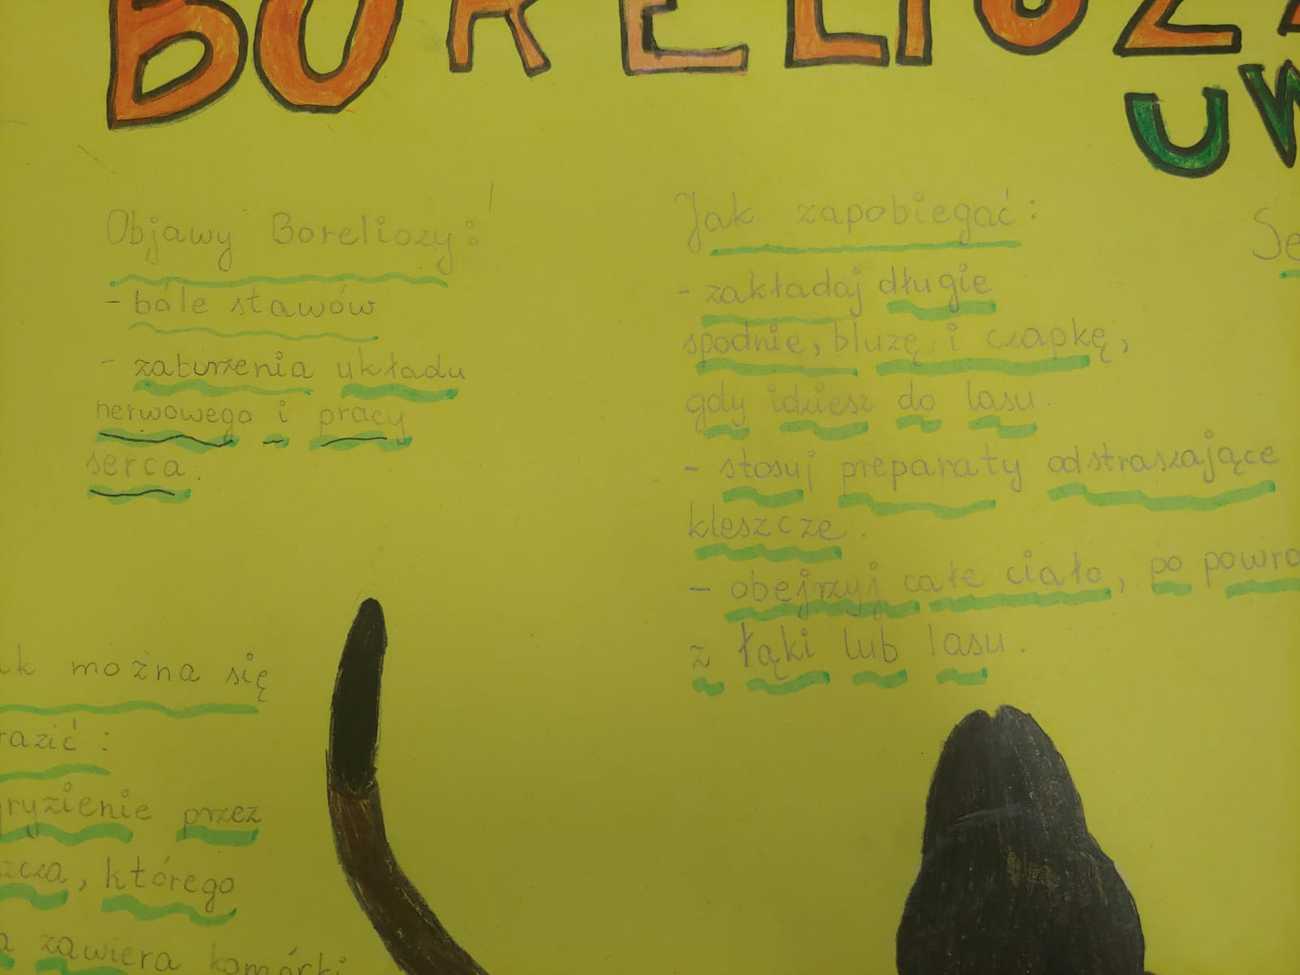 BORELIOZA
UW
Objawy Boreliozy:
- bóle stawów
- zaburzenia układu
nerwowego i pracy
serca.
Jak zapobiegać:
- zakładaj długie
spodnie, bluzę i czapkę,
gdy idziesz do lasu.
- stosuj preparaty odstraszające
kleszcze.
- obejrzyj całe ciało, po powro
z łąki lub lasu.
Se
ak można się
razić:
gryzienie przez
szcza, którego
a zawiera komórki